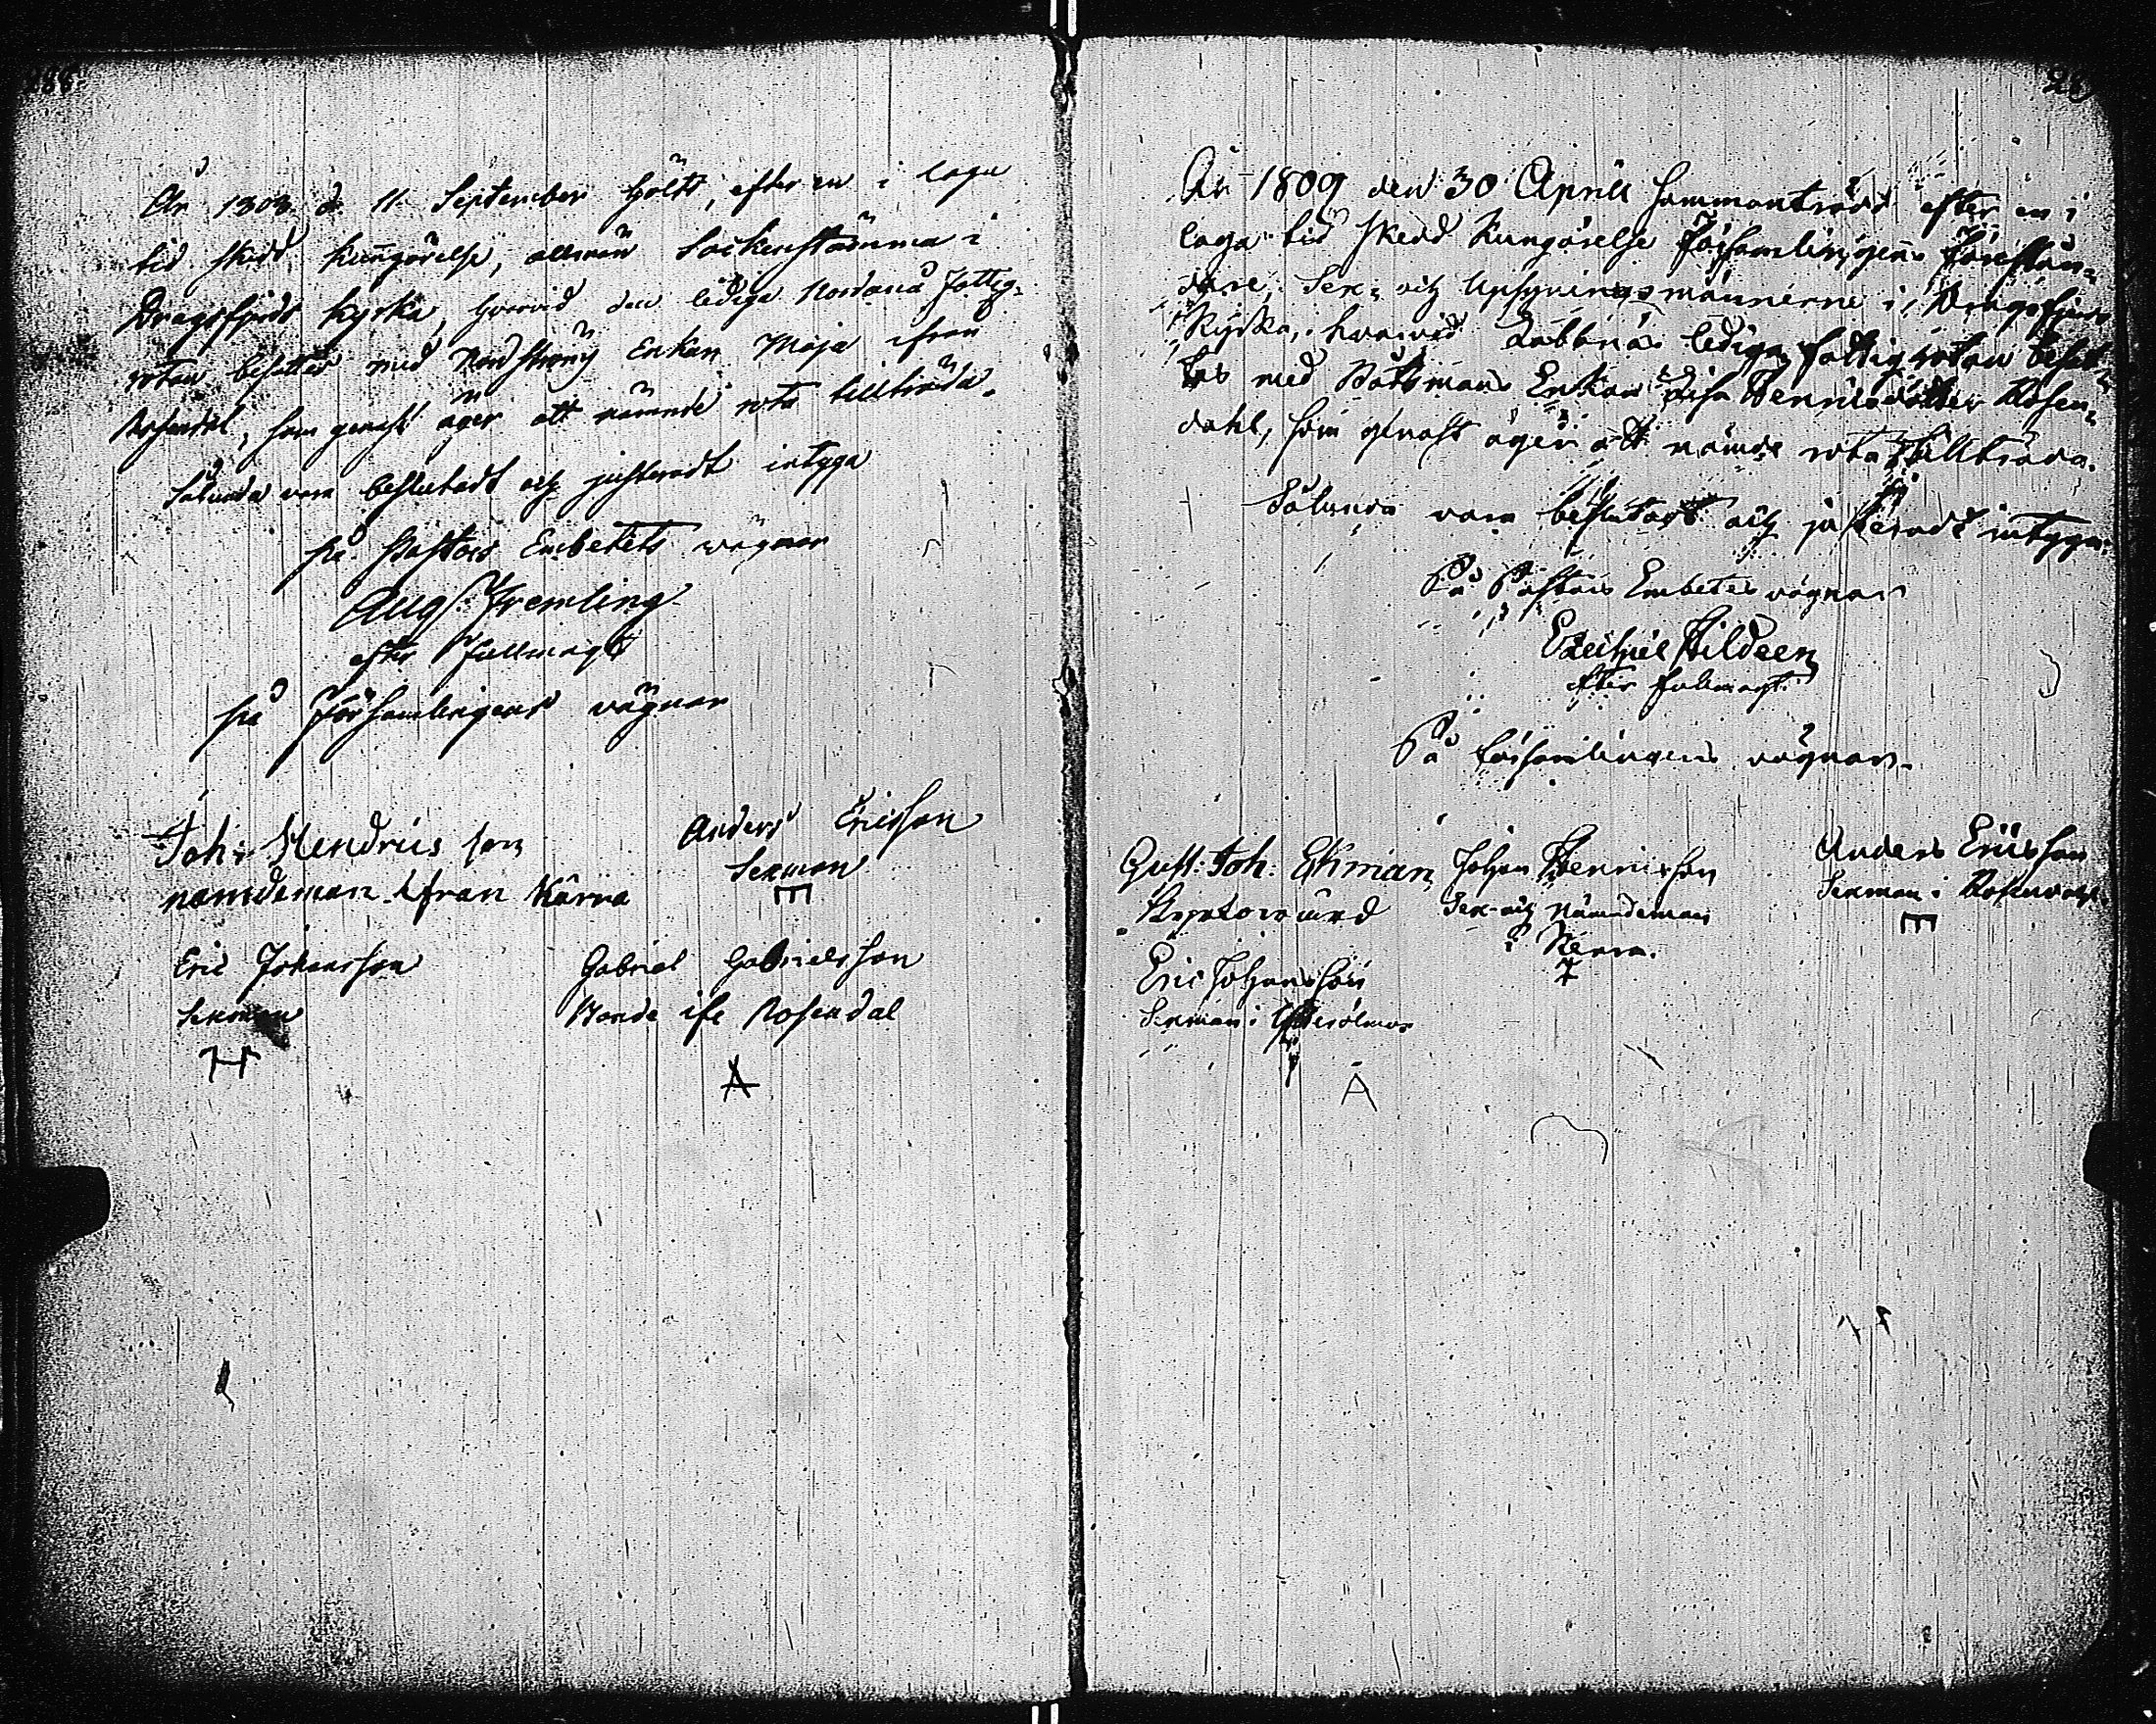 288.
År 1808 d. 11 September hölts, efter en i laga
tid skedd kungörelse, allmän Sockenstämma i
Dragsfjerds Kyrka, hvarvid den lediga Nordanå Fattig-
rotan besattes med Enkan Maja ifrån
Rosendal, som genast äger att nämnde rota tillträda.
Sålunda vara beslutadt och justeradt intyga
på Pastors Embetets vägnar
Aug. Fremling
efter fullmagt
på Församlingens vägnar
Joh: Hendricsson
namdeman ifran Kärra
Anders Ericsson
Sexman
E
Eric Johansson
Sexman
H
Gabriel Gabrielsson
Bonde ifr Rosendal
A
År 1809 den 30 April sammanträdde efter en i
laga tid skedd Kungörelse Församlingens Förestån-
dare, Sex- och Uppsyningsmännerne i Dragsfjerds
Kyrka, hvarvid Labbnäs lediga fattig rotan besat-
tes med Båtsmans Enkan Lisa Henricsdotter Rosen-
dahl, som genast äger att nämde rota tillträda.
Sålunda vara beslutadt och justeradt intyga.
På Pastors Embetes vägnar
Ezechiel Hildeen
efter fullmagt.
På församlingens vägnar.
Gust: Joh: Ekman
Kyrkovärd
Johan Henricsson
Sex- och Nämndeman
i Kerra.
Anders Ericsson
Sexman i Rosendahl
E
Eric Johansson
Sexman i
A